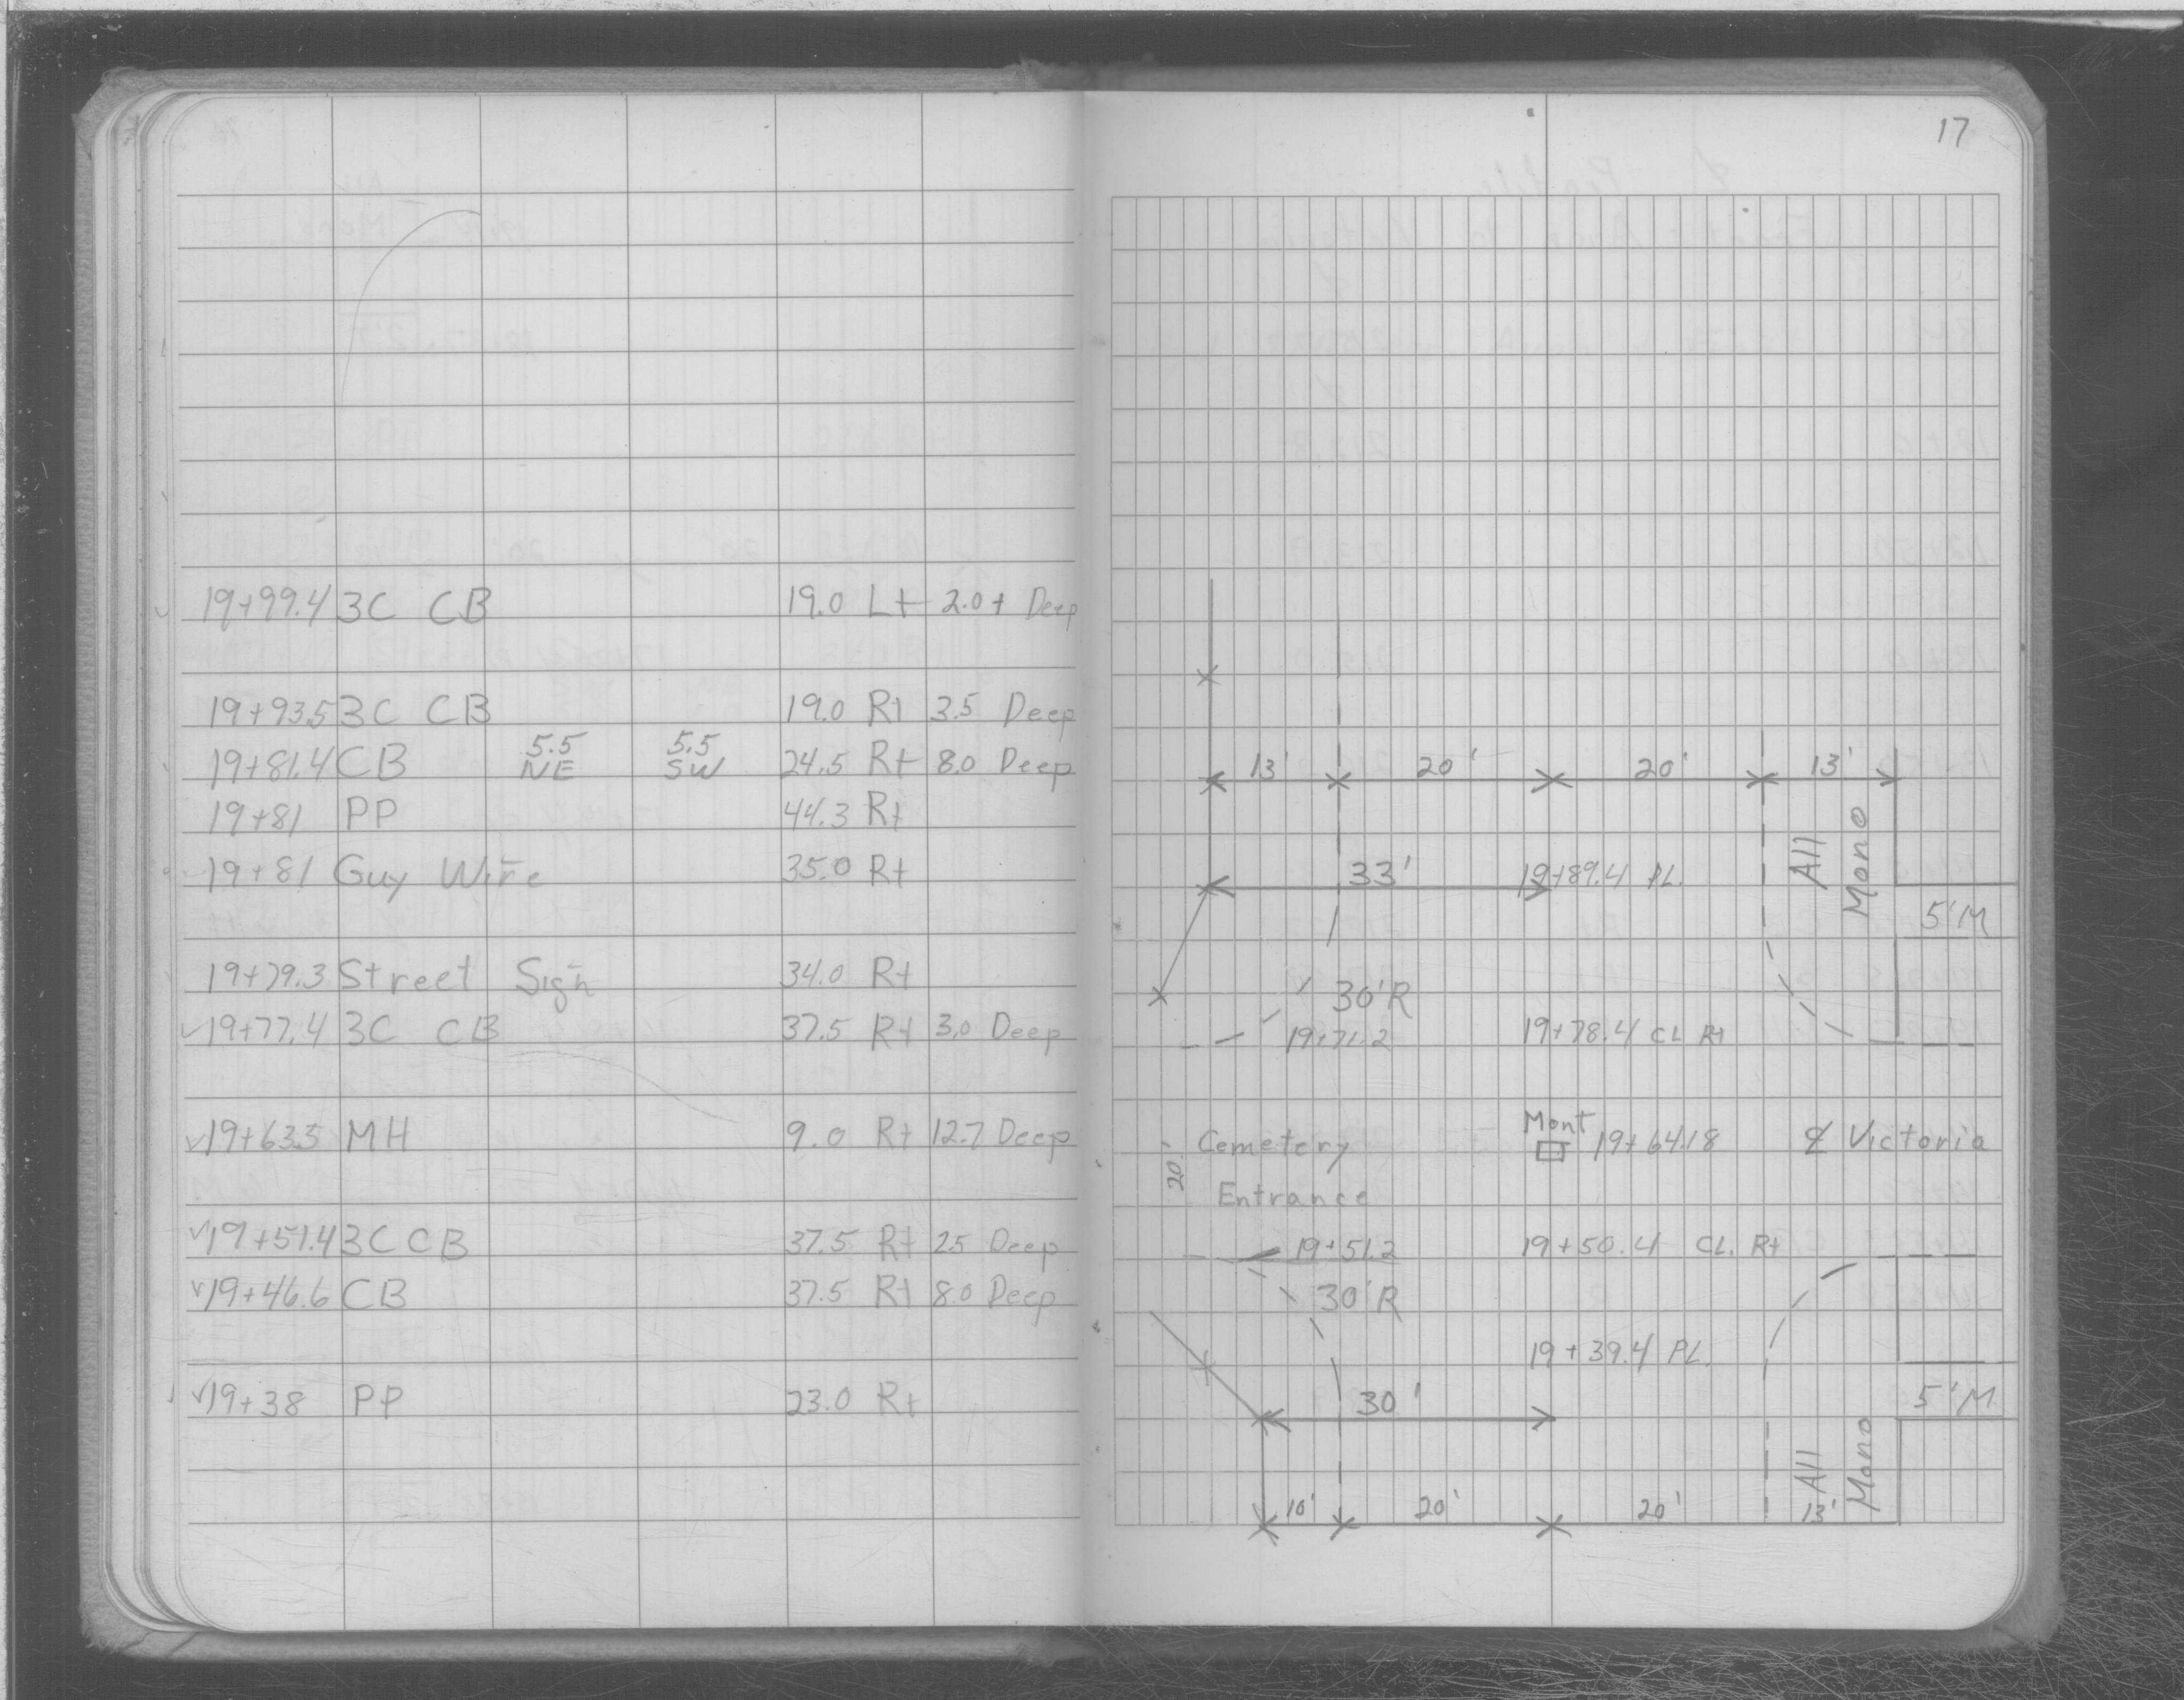 17
19+99.4 3C CB 19.0 Lt 2.0+ Deep
19+93.5 3C CB 19.0 Rt 3.5 Deep
19+81.4 CB 5.5 NE 5.5 SW 24.5 Rt 8.0 Deep
19+81 PP 44.3 Rt
19+81 Guy Wire 35.0 Rt
19+79.3 Street Sign 34.0 Rt
19+77.4 3C CB 37.5 Rt 3.0 Deep
19+63.5 MH 9.0 Rt 12.7 Deep
19+51.4 3C CB 37.5 Rt 2.5 Deep
19+46.6 CB 37.5 Rt 8.0 Deep
19+38 PP 23.0 Rt
13' 20' 20' 13'
All Mono
33' 19+89.4 PL.
5'M
30'R
19+71.2 19+78.4 CL Rt
Mont
20' Cemetery 19+64.18 ℄ Victoria
Entrance
19+51.2 19+50.4 CL. Rt
30'R
19+39.4 PL.
30' 5'M
All Mono
10' 20' 20' 13'